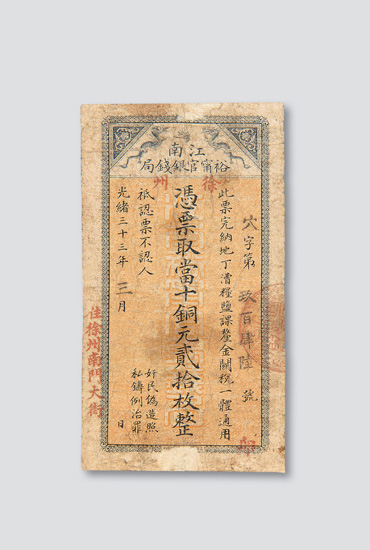 江南
裕甯官銀錢局
徐州
穴字第玖百肆陸號
此票完納地丁漕糧鹽課釐金關稅一體通用
憑票取當十銅元貳拾枚整
祗認票不認人
奸民偽造照
私鑄例治罪
光緒三十三年三月 日
住徐州南門大街